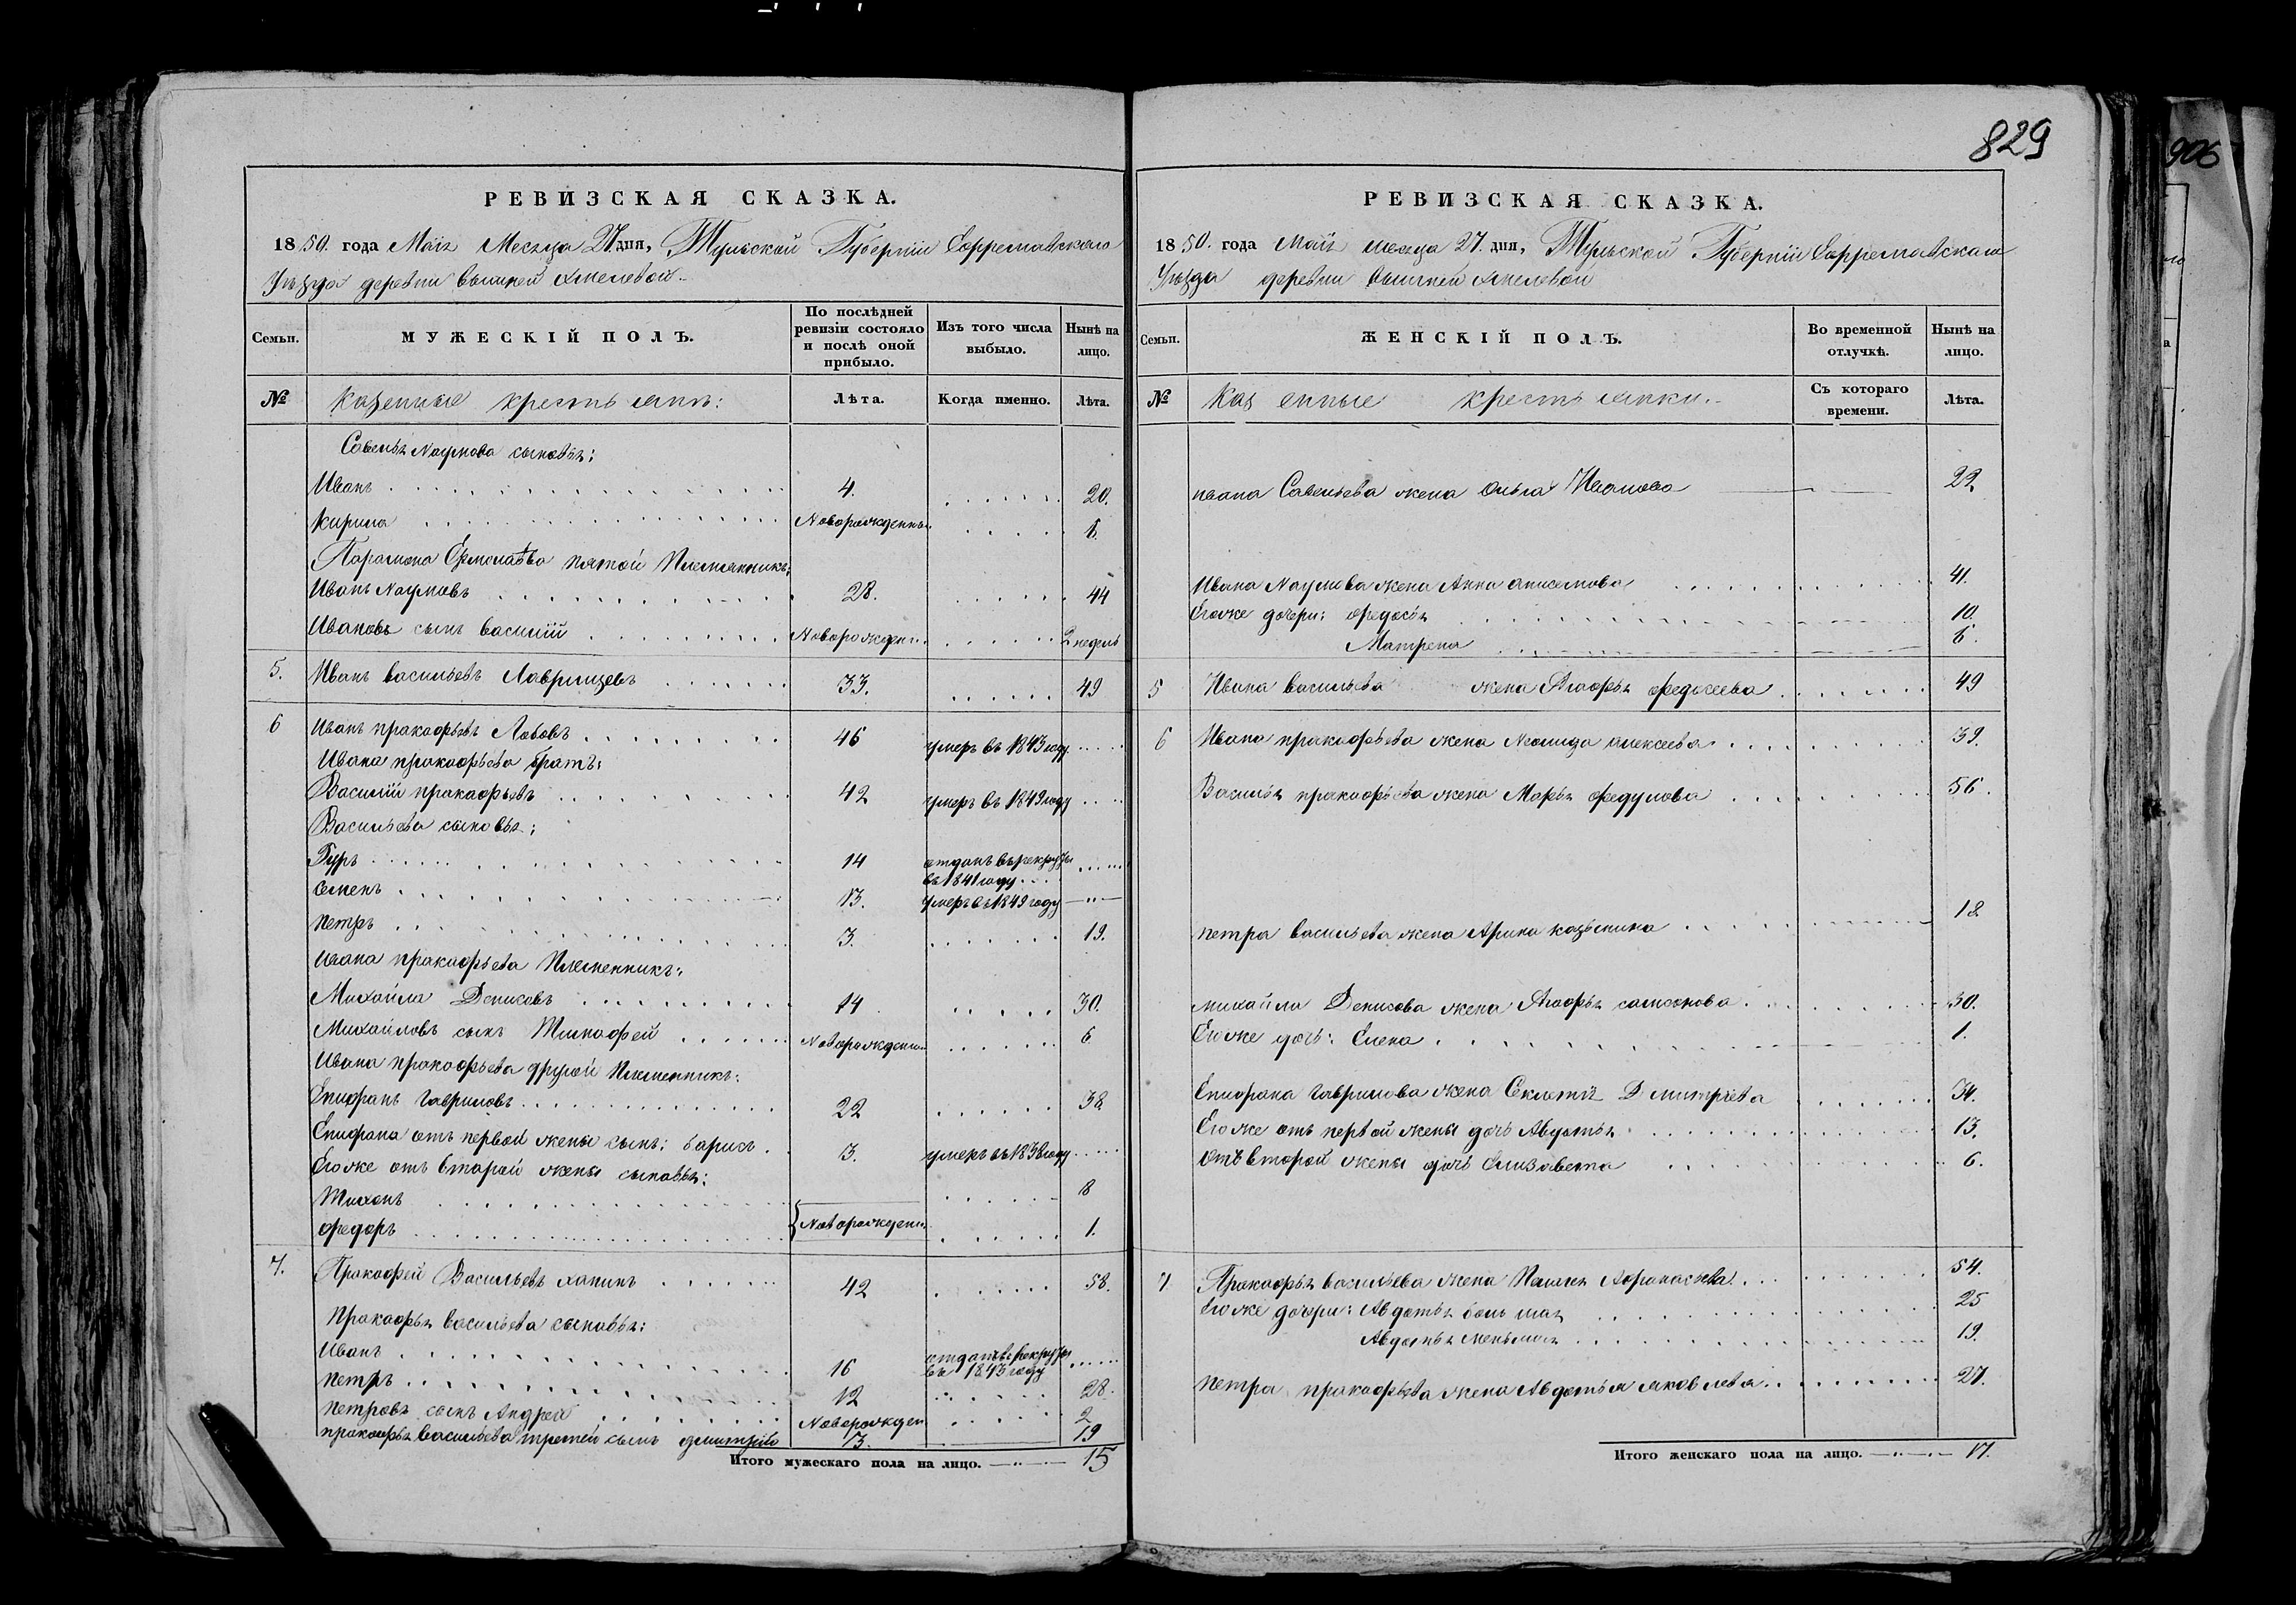 829
906
РЕВИЗСКАЯ СКАЗКА.
1850. года Маія Месяца 27 дня, Тульской Губерніи Ефремовскаго
Уѣзда деревни Вышней Хмелевой
Семьи.
МУЖЕСКІЙ ПОЛЪ.
По послѣдней ревизіи состояло и послѣ оной прибыло.
Изъ того числа выбыло.
Нынѣ на лицо.
№
Казенные крестьяне:
Лѣта.
Когда именно.
Лѣта.
Савелья Наумова сыновья:
Иванъ 4. 20.
Кирила Новорожденны 1.
Парамона Ермолаева пятой Племянникъ:
Иванъ Наумовъ 28. 44
Ивановъ сынъ Василій Новорожден. 2 недель
5. Иванъ Васильевъ 33. 49
6 Иванъ Пракафьевъ Лобовъ 46 умеръ въ 1843 году
Ивана Пракафьева братъ:
Василій Пракафьевъ 42 умеръ въ 1849 году
Васильева сыновья:
Гуръ 14 отданъ въ рекруты въ 1841 году
Семенъ 13. умеръ въ 1849 году
Петръ 3. 19.
Ивана Пракафьева Племенникъ:
Михайла Денисовъ 14 30.
Михайловъ сынъ Тимофей Новорожден 6
Ивана Пракофьева другой Племенникъ:
Епифанъ Гавриловъ 22 38
Епифана отъ первой жены сынъ: Барисъ 3. умеръ въ 1838 году
Его же отъ второй жены сыновья:
Тихонъ 8
Федоръ Новорожден 1.
7. Пракофей Васильевъ Хапинъ 42 58.
Пракафья Васильева сыновья:
Иванъ 16 отданъ в рекруты въ 1843 году
Петръ 12 28.
Петровъ сынъ Андрей Новорожден 2
Пракафья Васильева третей сынъ Дмитрій 3. 19
Итого мужескаго пола на лицо. 15
РЕВИЗСКАЯ СКАЗКА.
1850. года Маія месяца 27. дня, Тульской Губерніи Ефремовскаго
Уѣзда деревни Вышней Хмелевой
Семьи.
ЖЕНСКІЙ ПОЛЪ.
Во временной отлучкѣ.
Нынѣ на лицо.
№
Казенные крестьянки.
Съ котораго времени.
Лѣта.
Ивана Савельева жена Ольга Иванова 22
Ивана Наумова жена Анна Анисемова 41.
Его же дочери: Федосья 10.
Матрена 6.
5 Ивана Васильева жена Агафья Федосеева 49
6 Ивана Пракафьева жена Алексеева 39.
Василья Пракафьева жена Марья Федулова 56.
Петра Васильева жена Арина Казьмина 18
Михайла Денисова жена Агафья Самсонова 30.
Его же дочь: Елена 1.
Епифана Гаврилова жена Дмитріева 34.
Его же отъ первой жены дочь Авдотья 13.
Отъ второй жены дочь Елизавета 6.
7 Пракафья Васильева жена Афанасьева 54.
Его же дочери: Авдотья большая 25
Авдотья меньшая 19.
Петра Пракафьева жена Авдотья Яковлева 27.
Итого женскаго пола на лицо. 17.